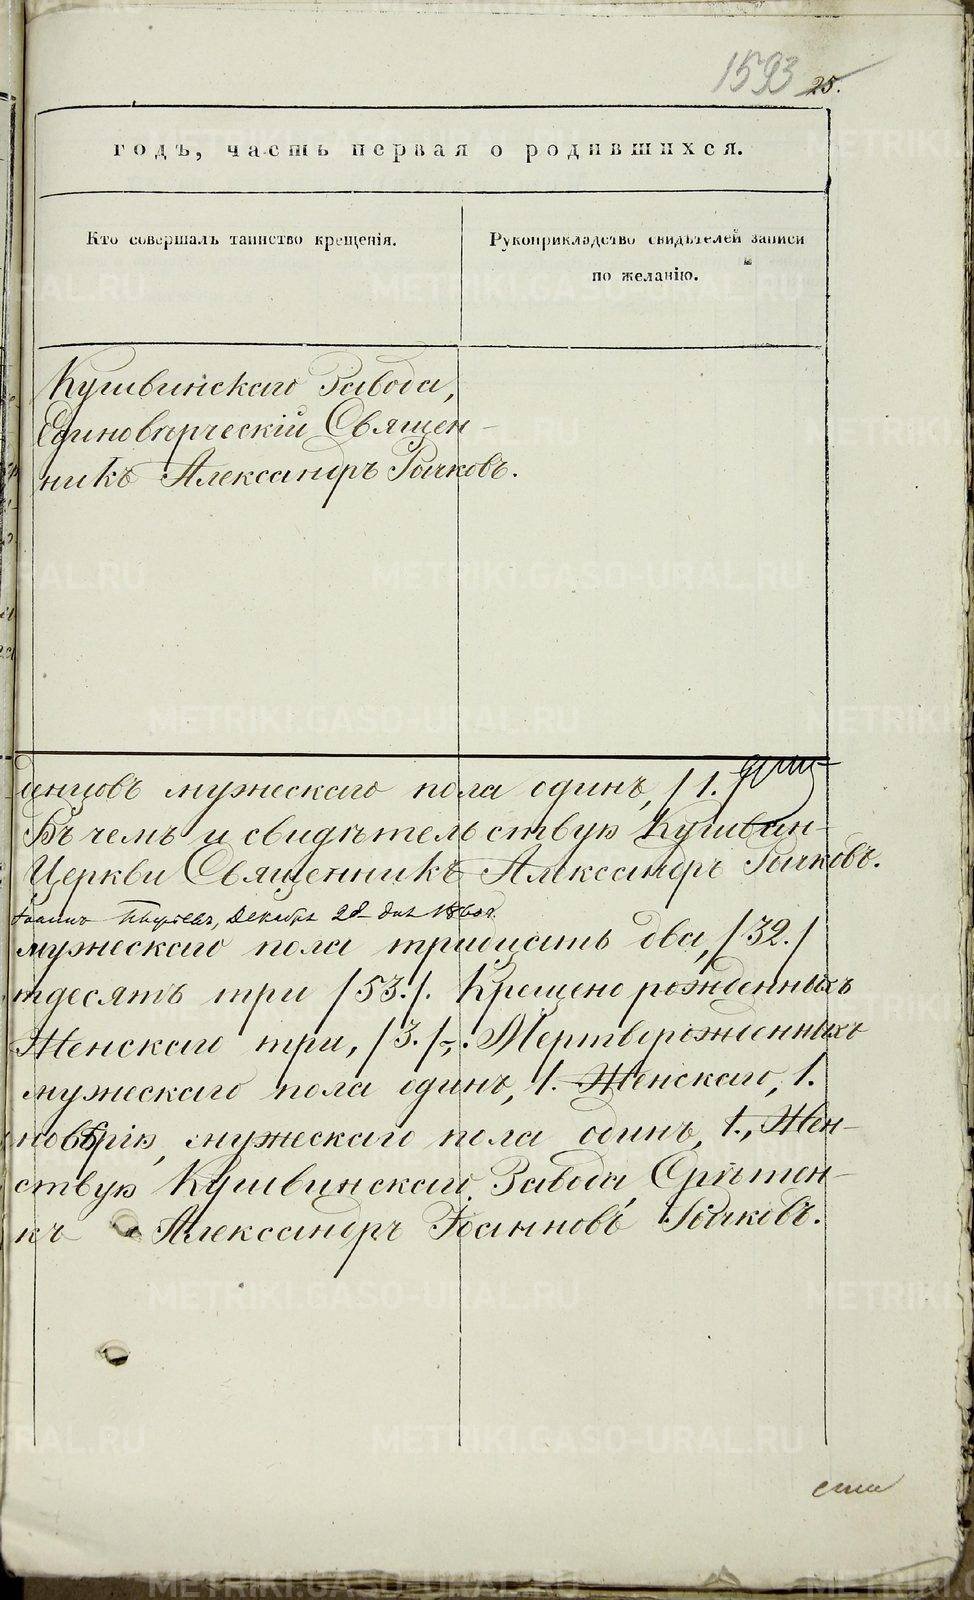 1593 25.
годъ, часть первая о родившихся.
Кто совершалъ таинство крещенія.
Рукоприкладство свидѣтелей записи
по желанію.
Кушвинскаго Завода,
Единовѣрческій Священ-
никъ Александръ Рычковъ.
мужескаго пола одинъ, /1.
Въ чемъ и свидѣтельствую Кушвин-
Церкви Священникъ Александръ Рычковъ.
Іоаннъ Декабря 28 дня 1860 г.
мужескаго пола тридцать два, /32./
тдесятъ три /53./. Крещено рожденныхъ
Женскаго три, /3./-. Мертворожденныхъ
мужескаго пола одинъ, 1. Женскаго, 1.
новѣрію, мужескаго пола одинъ, 1., Жен-
ствую Кушвинскаго Завода, Срѣтен-
къ Александръ Іоанновъ Рычковъ.
METRIKI.GASO-URAL.RU